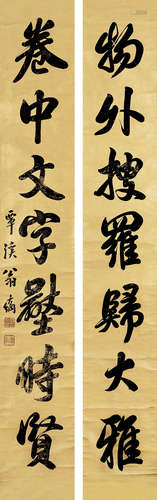 物外搜羅歸大雅
卷中文字壓時賢
覃溪翁方綱